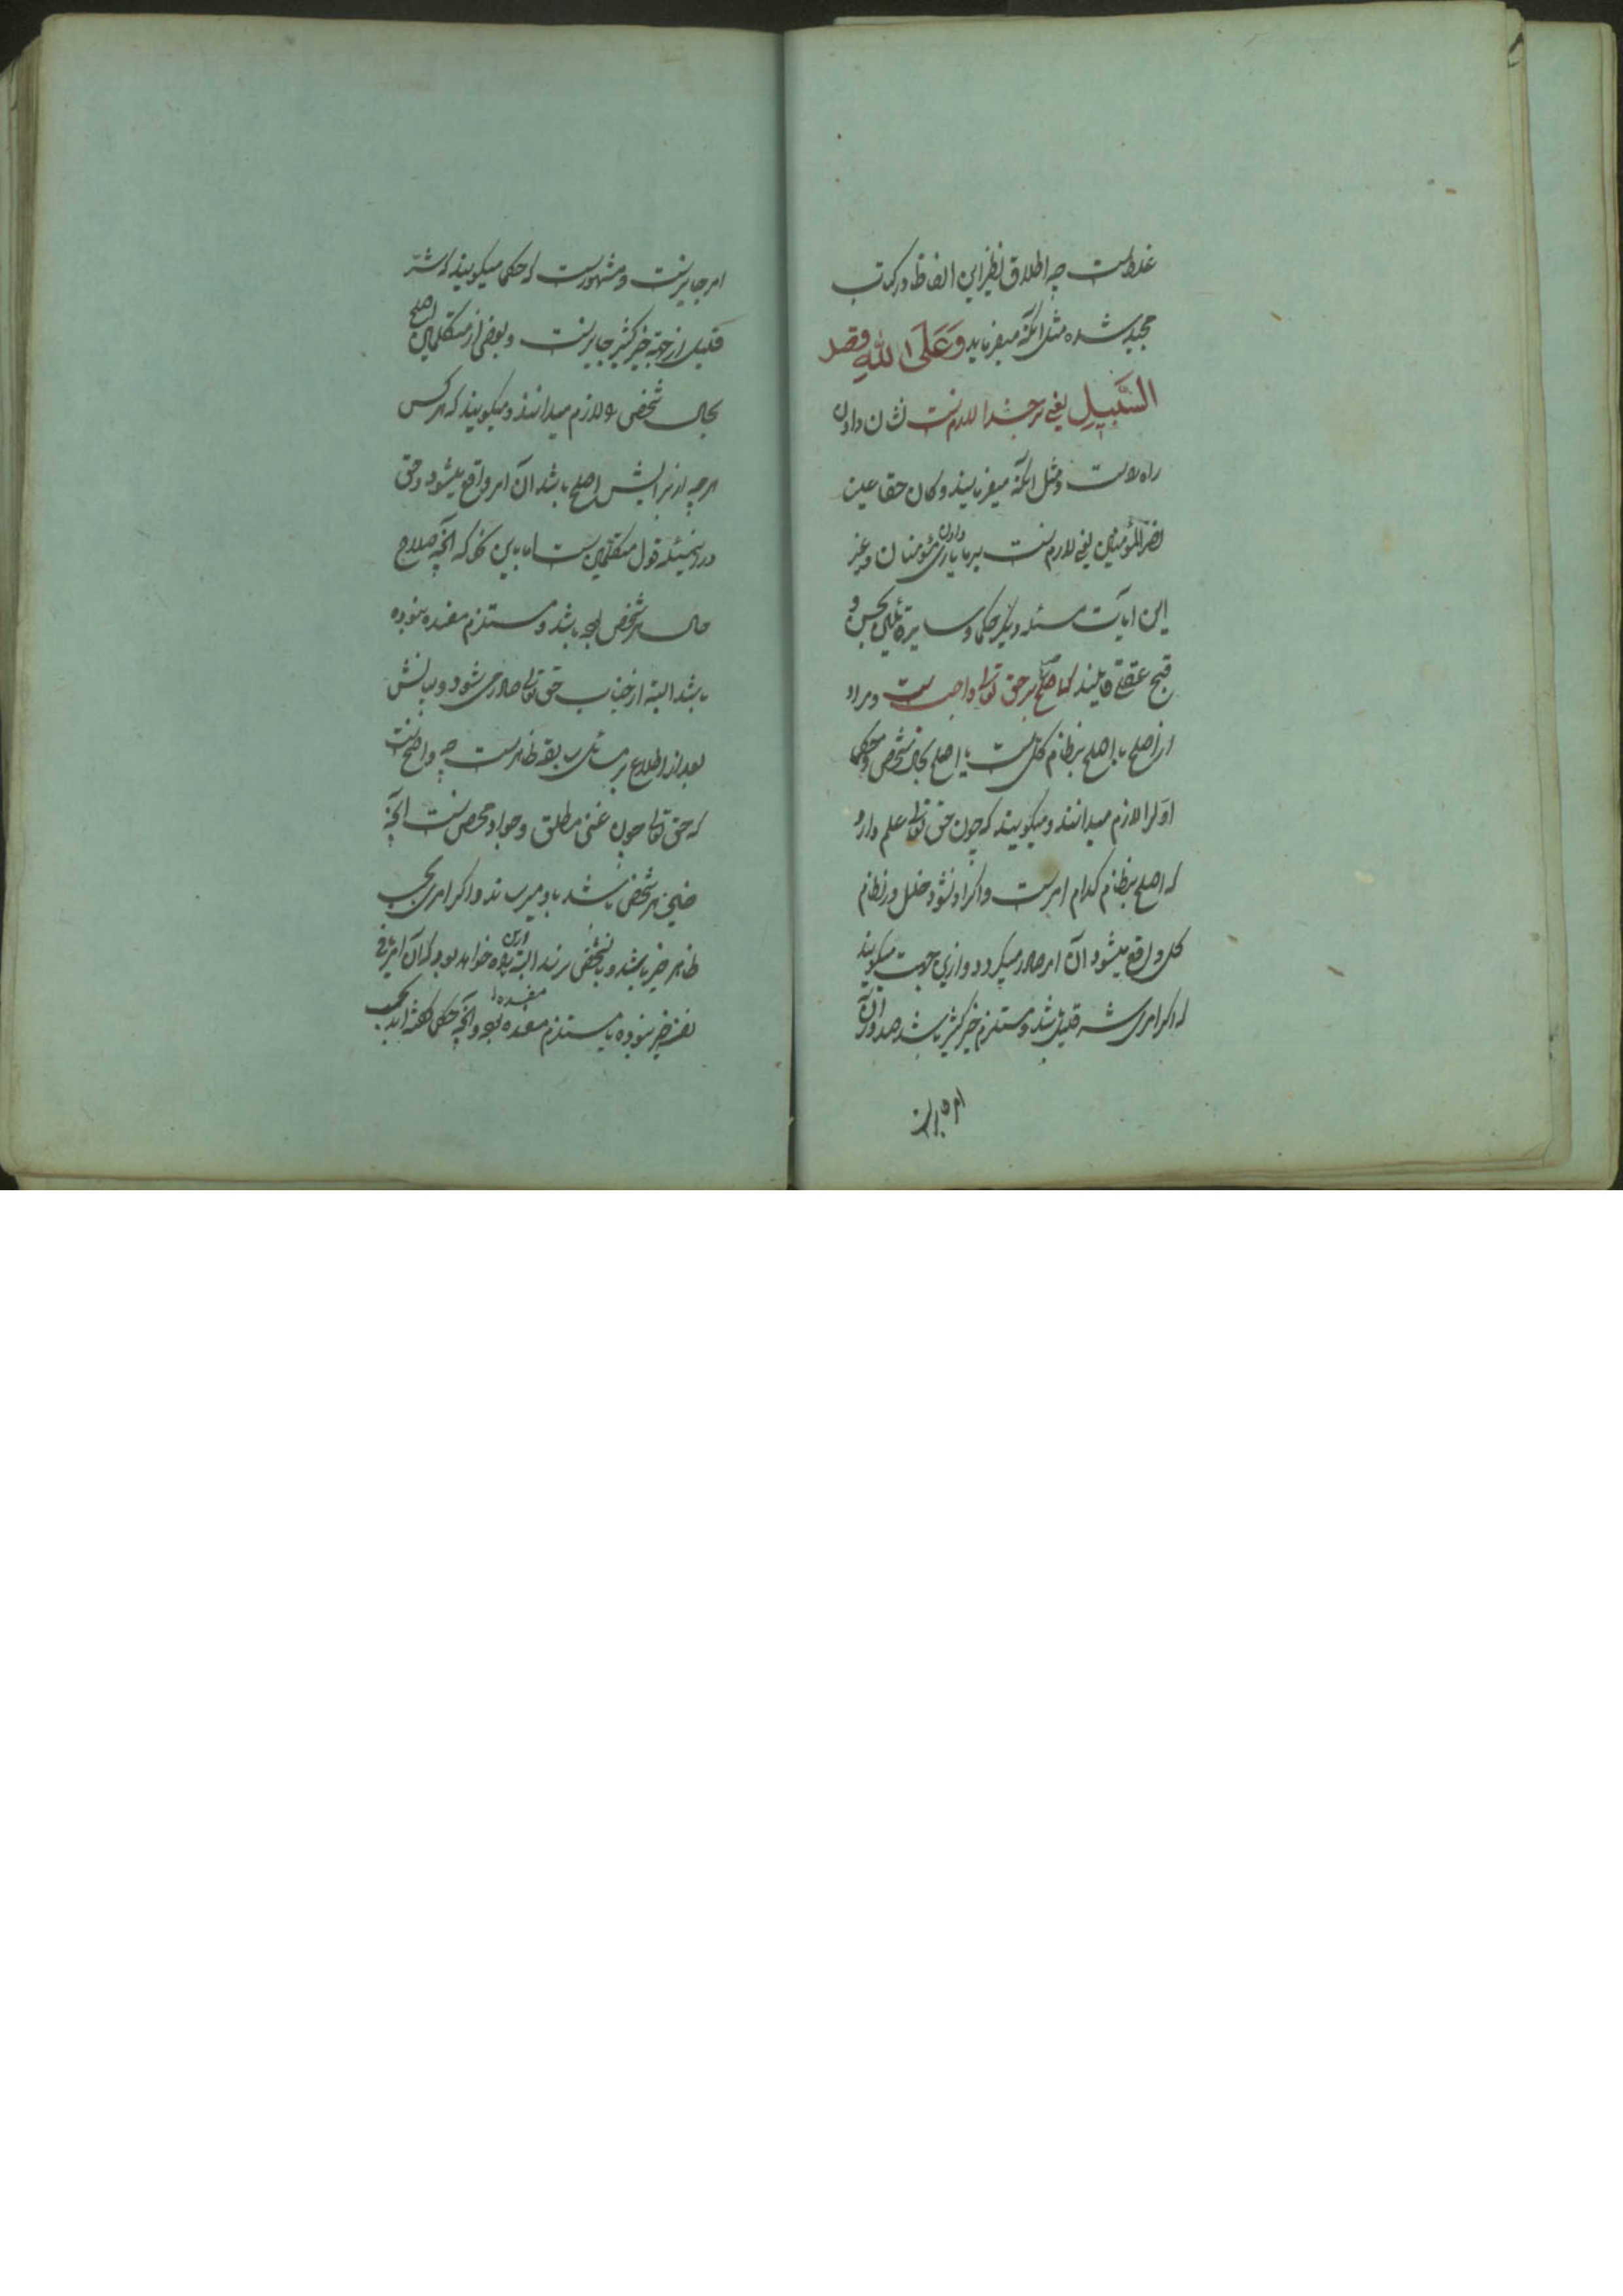 غلط است چه اطلاق نظیر این الفاظ در کتاب
مجید شده مثل آنکه میفرماید وَعَلَی اللهِ قصد
السَّبیلِ یعنی بر خدا لازمست نشان دادن
راه راست و مثل آنکه میفرمایند و کان حقا علینا
نصر المؤمنین یعنی لازمست بر ما یاری دادن مؤمنان و غیر
این ایات مسئله دیگر حکما و سایر قائلین بحسن و
قبح عقلی قایلند که اصلح بر حق تعالی واجب است و مراد
از اصلح یا اصلح بنظام کل است یا اصلح بحال شخص و حکما
اول را لازم میدانند و میکویند که چون حق تعالی علم دارد
که اصلح بنظام کدام امر است و اکر او نشود خلل در نظام
کل واقع میشود آن امر صادر میکردد و ازین جهت میکویند
که اکر امری شر قلیل باشد و مستلزم خیر کثیر باشد صدور آن
امر جایز
امر جایز است و مشهور است که حکما میکویند که شر
قلیل از جهة خیر کثیر جایز است و بعضی از متکلمین اصلح
بحال شخص را لازم میدانند و میکویند که هر کس
هر چه از برایش اصلح باشد آن امر واقع میشود و حق
درین مسئله قول متکلمین است اما باین نحو که آنچه صلاح
حال هر شخص باشد و مستلزم مفسده نبوده
باشد البته از جناب حق تعالی صادر می شود و بیانش
بعد از اطلاع بر مسائل سابقه ظاهر است چه واضح است
که حق تعالی چون غنی مطلق و جواد محض است آنچه
خیر هر شخص باشد باو میرساند و اکر امری بحسب
ظاهر خیر باشد و بشخص نرسد البته ازین راه خواهد بود که آن امر فی
نفسه خیر نبوده یا مستلزم مفسده بود و آنچه حکما کفته اند بحسب